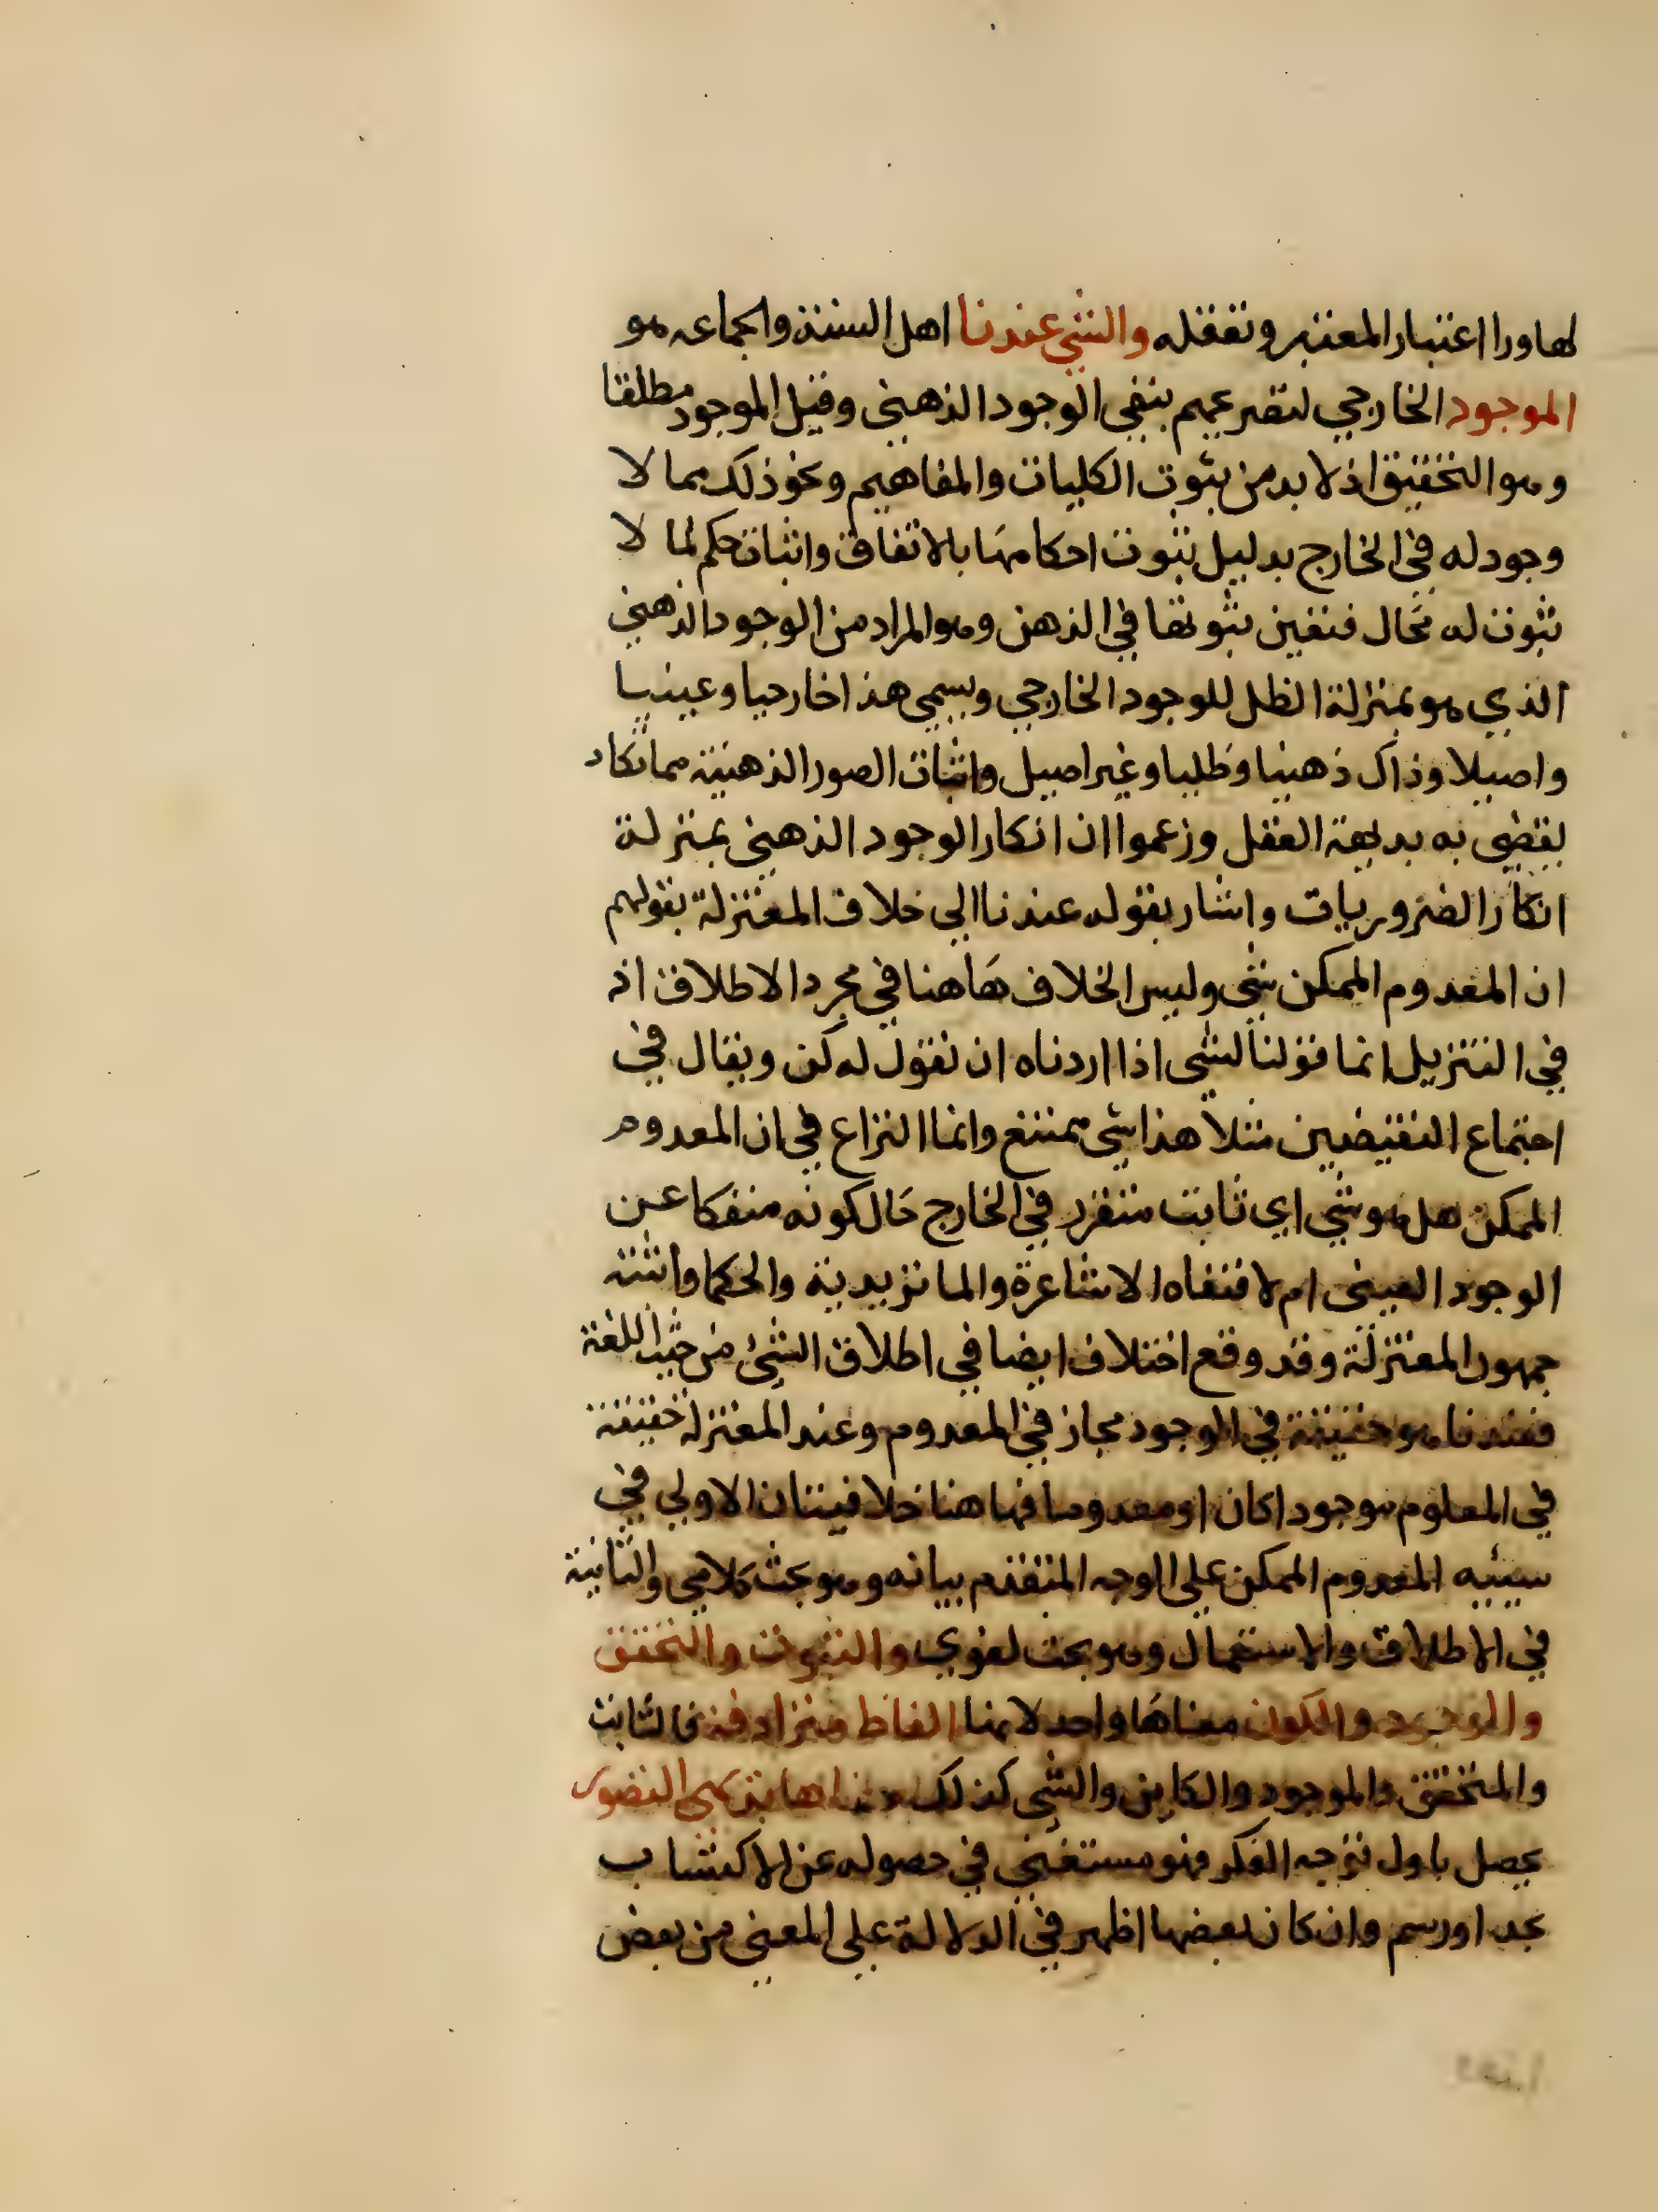 لها ورا اعتبار المعتبر وتعقله والشي عندنا اهل السنة والجماعه هو
الموجود الخارجي لتصريحهم بنفي الوجود الذهني وقيل الموجود مطلقا
وهو التحقيق اذ لا بد من ثبوت الكليات والمفاهيم ونحو ذلك مما لا
وجود له في الخارج بدليل ثبوت احكامها بالاتفاق واثبات حكم لما لا
ثبوت له محال فتعين ثبوتها في الذهن وهو المراد من الوجود الذهني
الذي هو بمنزلة الظل للوجود الخارجي ويسمى هذا خارجيا وعينيا
واصيلا وذاك ذهنيا وظليا وغير اصيل واثبات الصور الذهنية مما تكاد
يقضي به بديهة العقل وزعموا ان انكار الوجود الذهني بمنزلة
انكار الضروريات واشار بقوله عندنا الى خلاف المعتزلة بقولهم
ان المعدوم الممكن شي وليس الخلاف هاهنا في مجرد الاطلاق اذ
في التنزيل انما قولنا لشي اذا اردناه ان نقول له كن ويقال في
اجتماع النقيضين مثلا هذا شي ممتنع وانما النزاع في ان المعدوم
الممكن هل هو شي اي ثابت متقرر في الخارج حال كونه منفكا عن
الوجود العيني ام لا فنفاه الاشاعرة والماتريدية والحكما واثبته
جمهور المعتزلة وقد وقع اختلاف ايضا في اطلاق الشيء من حيث اللغة
فعندنا هو حقيقة في الموجود مجاز في المعدوم وعند المعتزلة حقيقة
في المعلوم موجودا كان او معدوما فهاهنا خلافيتان الاولى في
شيئيه المعدوم الممكن على الوجه المتقدم بيانه وهو بحث كلامي والثانية
في الاطلاق والاستعمال وهو بحث لغوي والثبوت والتحقق
والوجود والكون معناها واحد لانها الفاظ مترادفة فالثابت
والمتحقق والموجود والكاين والشي كذلك معناها بديهي التصور
يحصل باول توجه الفكر فهو مستغني في حصوله عن الاكتساب
بحد او رسم وان كان بعضها اظهر في الدلالة على المعنى من بعض